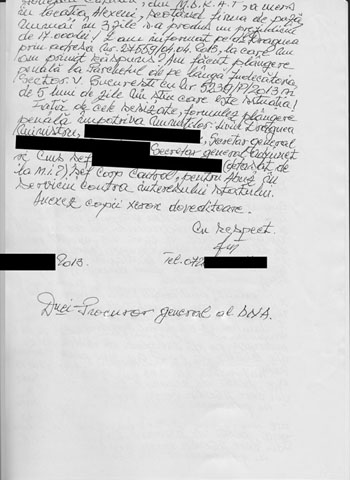 în locația Alexeni, pe banii firmei de pază,
numai în 3 zile s-a produs un prejudiciu
de 17.000 lei! L-am informat pe dl Dragnea
prin adresa Nr. 27559/04.04.2013, la care nu
am primit răspuns! Am făcut plângere
penală la Parchetul de pe lângă Judecătoria
Sector V București cu Nr. 5239/P/2013
de 5 luni de zile nu știu care este
Față de cele sesizate, formulez plângere
penală împotriva Liviu Dragnea
(ministru), Secretar general
Secretar general adjunct
și Cms Șef (detașat de
la M.I.) Șef Corp Control, pentru Abuz în
Serviciu contra intereselor Statului.
Anexez copii xerox doveditoare.
Cu respect.
2013. Tel. 072
Dnei - Procuror general al DNA.